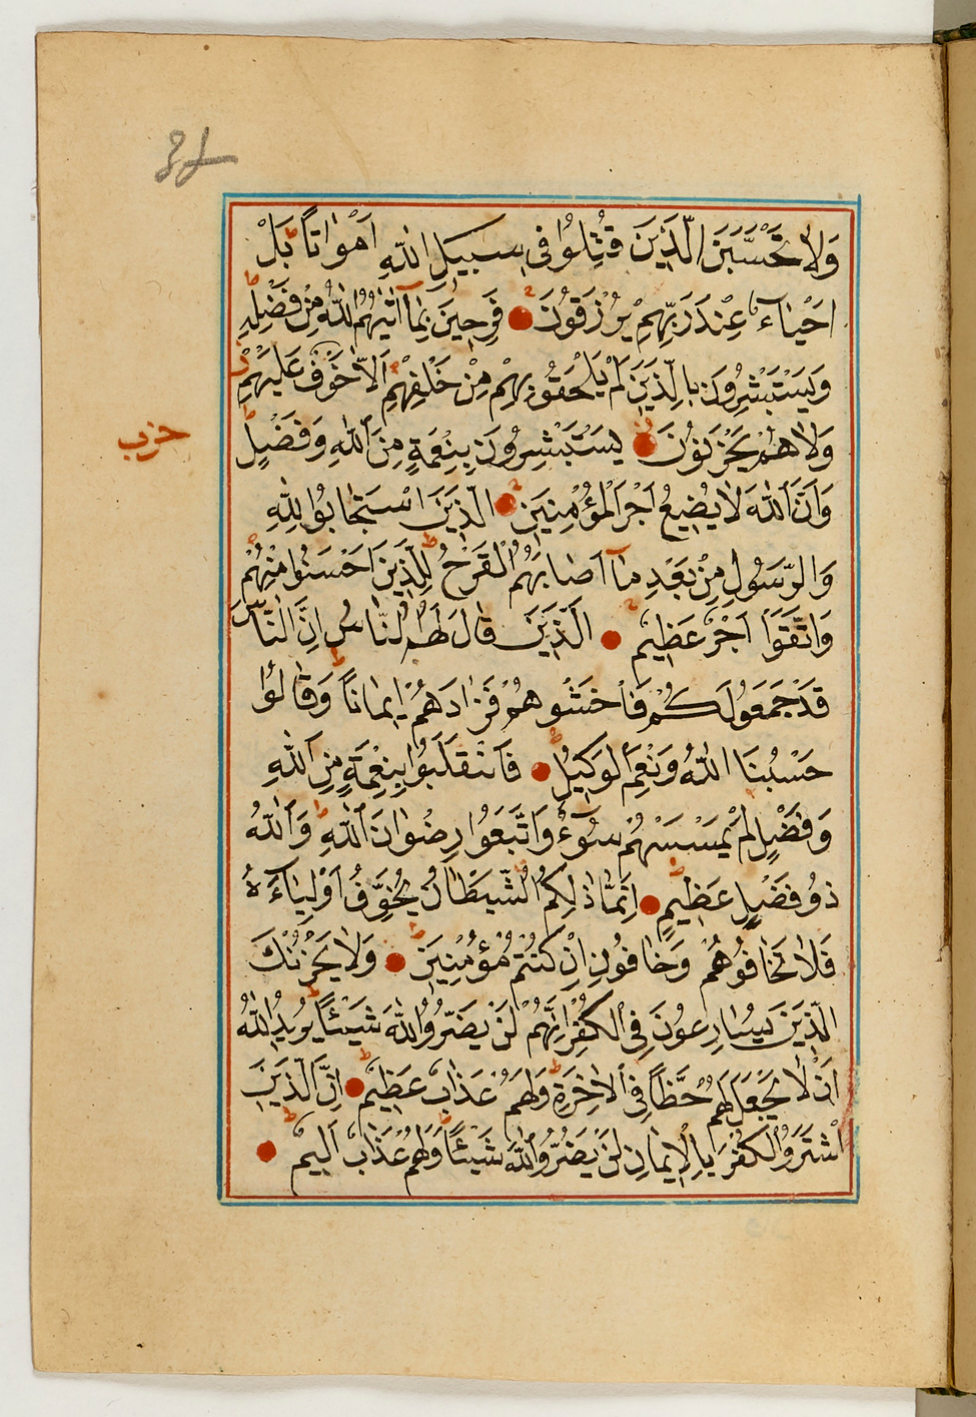 وَلَا تَحْسَبَنَّ الَّذِينَ قُتِلُوا فِي سَبِيلِ اللّٰهِ اَمْوَاتًا بَلْ
اَحْيَاءٌ عِنْدَ رَبِّهِمْ يُرْزَقُونَ فَرِحِينَ بِمَا اٰتٰيهُمُ اللّٰهُ مِنْ فَضْلِهِ
وَيَسْتَبْشِرُونَ بِالَّذِينَ لَمْ يَلْحَقُوا بِهِمْ مِنْ خَلْفِهِمْ اَلَّا خَوْفٌ عَلَيْهِمْ
وَلَا هُمْ يَحْزَنُونَ يَسْتَبْشِرُونَ بِنِعْمَةٍ مِنَ اللّٰهِ وَفَضْلٍ
حزب
وَاَنَّ اللّٰهَ لَا يُضِيعُ اَجْرَ الْمُؤْمِنِينَ الَّذِينَ اسْتَجَابُوا لِلّٰهِ
وَالرَّسُولِ مِنْ بَعْدِ مَا اَصَابَهُمُ الْقَرْحُ لِلَّذِينَ اَحْسَنُوا مِنْهُمْ
وَاتَّقَوْا اَجْرٌ عَظِيمٌ الَّذِينَ قَالَ لَهُمُ النَّاسُ اِنَّ النَّاسَ
قَدْ جَمَعُوا لَكُمْ فَاخْشَوْهُمْ فَزَادَهُمْ اِيمَانًا وَقَالُوا
حَسْبُنَا اللّٰهُ وَنِعْمَ الْوَكِيلُ فَانْقَلَبُوا بِنِعْمَةٍ مِنَ اللّٰهِ
وَفَضْلٍ لَمْ يَمْسَسْهُمْ سُوءٌ وَاتَّبَعُوا رِضْوَانَ اللّٰهِ وَاللّٰهُ
ذُو فَضْلٍ عَظِيمٍ اِنَّمَا ذٰلِكُمُ الشَّيْطَانُ يُخَوِّفُ اَوْلِيَاءَهُ
فَلَا تَخَافُوهُمْ وَخَافُونِ اِنْ كُنْتُمْ مُؤْمِنِينَ وَلَا يَحْزُنْكَ
الَّذِينَ يُسَارِعُونَ فِي الْكُفْرِ اِنَّهُمْ لَنْ يَضُرُّوا اللّٰهَ شَيْئًا يُرِيدُ اللّٰهُ
اَنْ لَا يَجْعَلَ لَهُمْ حَظًّا فِي الْاٰخِرَةِ وَلَهُمْ عَذَابٌ عَظِيمٌ اِنَّ الَّذِينَ
اشْتَرَوُا الْكُفْرَ بِالْاِيمَانِ لَنْ يَضُرُّوا اللّٰهَ شَيْئًا وَلَهُمْ عَذَابٌ اَلِيمٌ